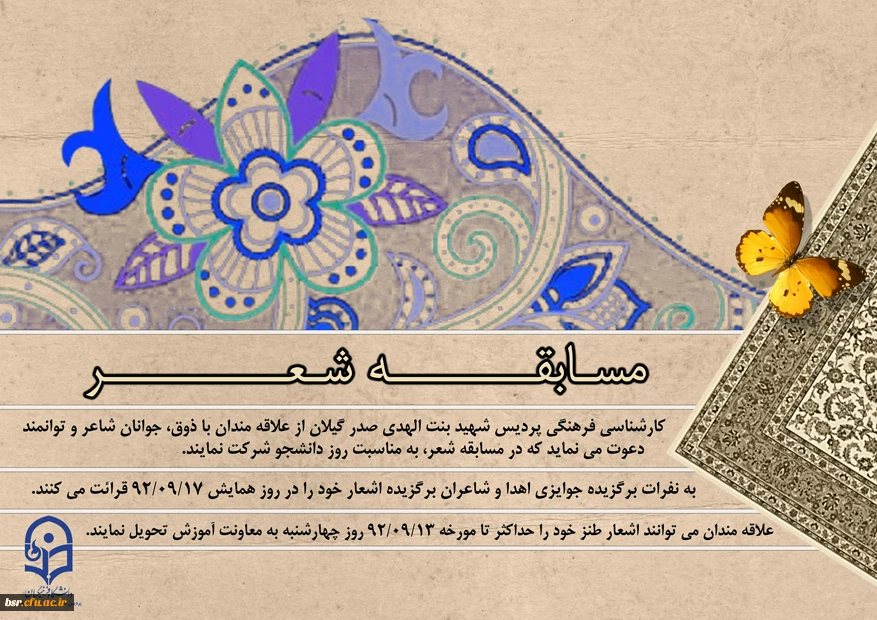 مسابقـــه شعـــر
کارشناسی فرهنگی پردیس شهید بنت الهدی صدر گیلان از علاقه مندان با ذوق، جوانان شاعر و توانمند
دعوت می نماید که در مسابقه شعر، به مناسبت روز دانشجو شرکت نمایند.
به نفرات برگزیده جوایزی اهدا و شاعران برگزیده اشعار خود را در روز همایش ۹۲/۰۹/۱۷ قرائت می کنند.
علاقه مندان می توانند اشعار طنز خود را حداکثر تا مورخه ۹۲/۰۹/۱۳ روز چهارشنبه به معاونت آموزش تحویل نمایند.
bsr.cfu.ac.ir